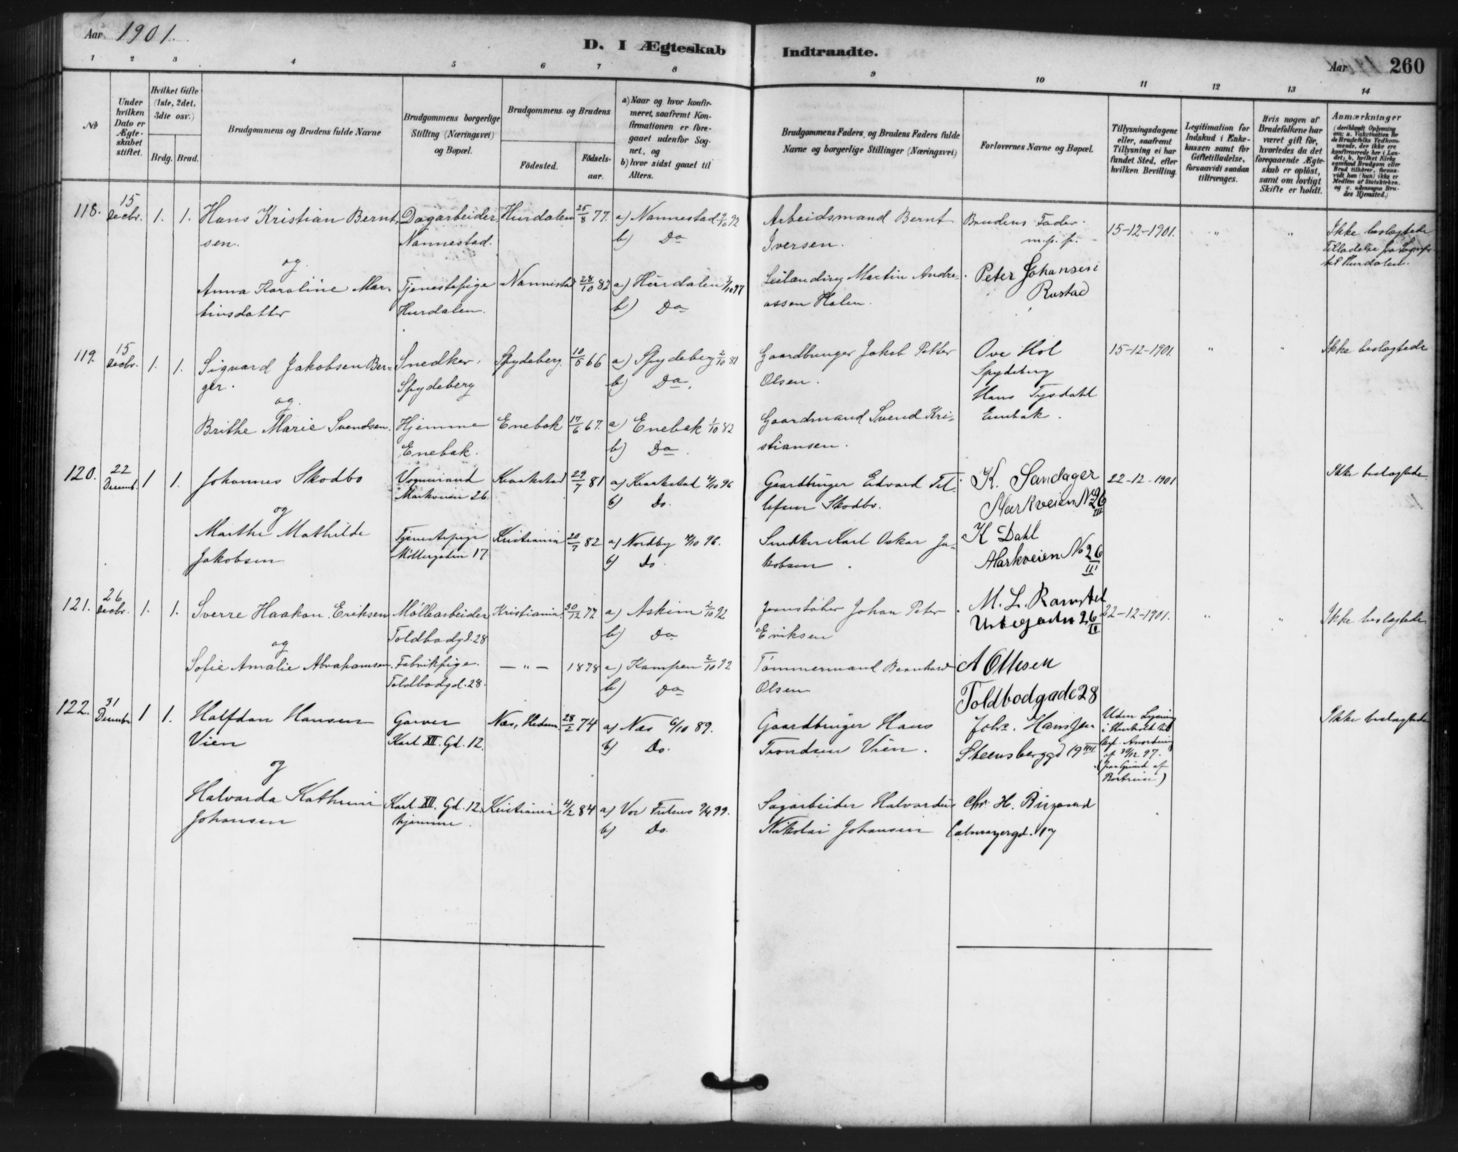 Aar 1901.
D. I Ægteskab Indtraadte.
Aar 260
1 2 3 4 5 6 7 8 9 10 11 12 13 14
No
Under hvilken Dato er Ægteskabet stiftet.
Hvilket Gifte (1ste, 2det, 3die osv.)
Brdg. Brud.
Brudgommens og Brudens fulde Navne
Brudgommens borgerlige Stilling (Næringsvei) og Bopæl.
Brudgommens og Brudens
Födested.
Födsels-aar.
a) Naar og hvor konfirmeret, saafremt Konfirmationen er foregaaet udenfor Sognet, og
b) hvor sidst gaaet til Alters.
Brudgommens Faders, og Brudens Faders fulde Navne og borgerlige Stillinger (Næringsvei)
Forlovernes Navne og Bopæl.
Tillysningsdagene eller, saafremt Tillysning ei har fundet Sted, efter hvilken Bevilling.
Legitimation for Indskud i Enkekassen samt för Giftetilladelse, forsaavidt saadan tiltrænges.
Hvis nogen af Brudefolkene har været gift för, hvorledes da det foregaaende Ægteskab er oplöst, samt om lovligt Skifte er holdt.
Anmærkninger
118. 15 Decbr. 1. 1. Hans Kristian Berntsen. Dagarbeider Nannestad. Hurdalen 25/8 77. a) Nannestad 2/10 92 b) Do Arbeidsmand Bernt Iversen. Brudens Fader m. p. p. 15-12-1901. " " Ikke beslægtede
Tilladelse fra Sognepr. til Hurdalen.
og
Anna Karoline Martinsdatter Tjenestepige Hurdalen. Nannestad 28/10 82 a) Hurdalen 3/10 97 b) Do Leilænding Martin Andreassen Holen. Peter Johansen Rustad
119. 15 Decbr. 1. 1. Sigvard Jakobsen Berger. Snedker. Spydeberg Spydeberg. 10/5 66 a) Spydeberg 2/10 81 b) Do. Gaardbruger Jakob Petter Olsen. Ove Hol Spydeberg 15-12-1901. " " Ikke beslægtede
og
Brithe Marie Svendsen. Hjemme Enebak. Enebak 17/6 67. a) Enebak 1/10 82 b) Do. Gaardmand Svend Kristiansen. Hans Tysdahl Enebak.
120. 22 Decemb. 1 1. Johannes Skodbo Vognmand Markveien 26 Kraakstad 29/7 81 a) Kraakstad 4/10 96 b) Do. Gaardbruger Edvard Skodbo. K. Sandager Markveien No 26 III 22-12-1901. Ikke beslægtede
og
Marthe Mathilde Jakobsen Tjenestepige Möllergaden 17 Kristiania 20/7 82 a) Nordby 4/10 96. b) Do Snedker Karl Oskar Jakobsen. K Dahl Markveien No 26 III
121. 26 Decbr. 1. 1. Sverre Haakon Eriksen Möllearbeider Toldbodgd. 28 Kristiania. 20/12 77 a) Askim 2/10 92 b) Do Johan Peter Eriksen M. L. Ramstad 26 II 22-12-1901. " " Ikke beslægtede
og
Sofie Amalie Abrahamsen. Fabrikpige. Toldbodgd. 28. — " — 1878 a) Kampen 2/10 92 b) Do Tömmermand Bernhard Olsen A Olsen Toldbodgade 28
122. 31 Decembr. 1 1. Halfdan Hansen Vien Garver Karl XII. Gd. 12. Næs, Hedem. 28/2 74 a) Næs 6/10 89. b) Do. Gaardbruger Hans Trondsen Vien. Joh. Hansen Steensberggd 19 Uden Lysning Ikke beslægtede
og
Halvarda Kathrine Johansen Karl XII. Gd. 12. hjemme. Kristiania 4/2 84 a) Vor Frelsers 99. b) Do. Sagarbeider Halvardus Nikolai Johansen Chr. H. Calmeyergd.